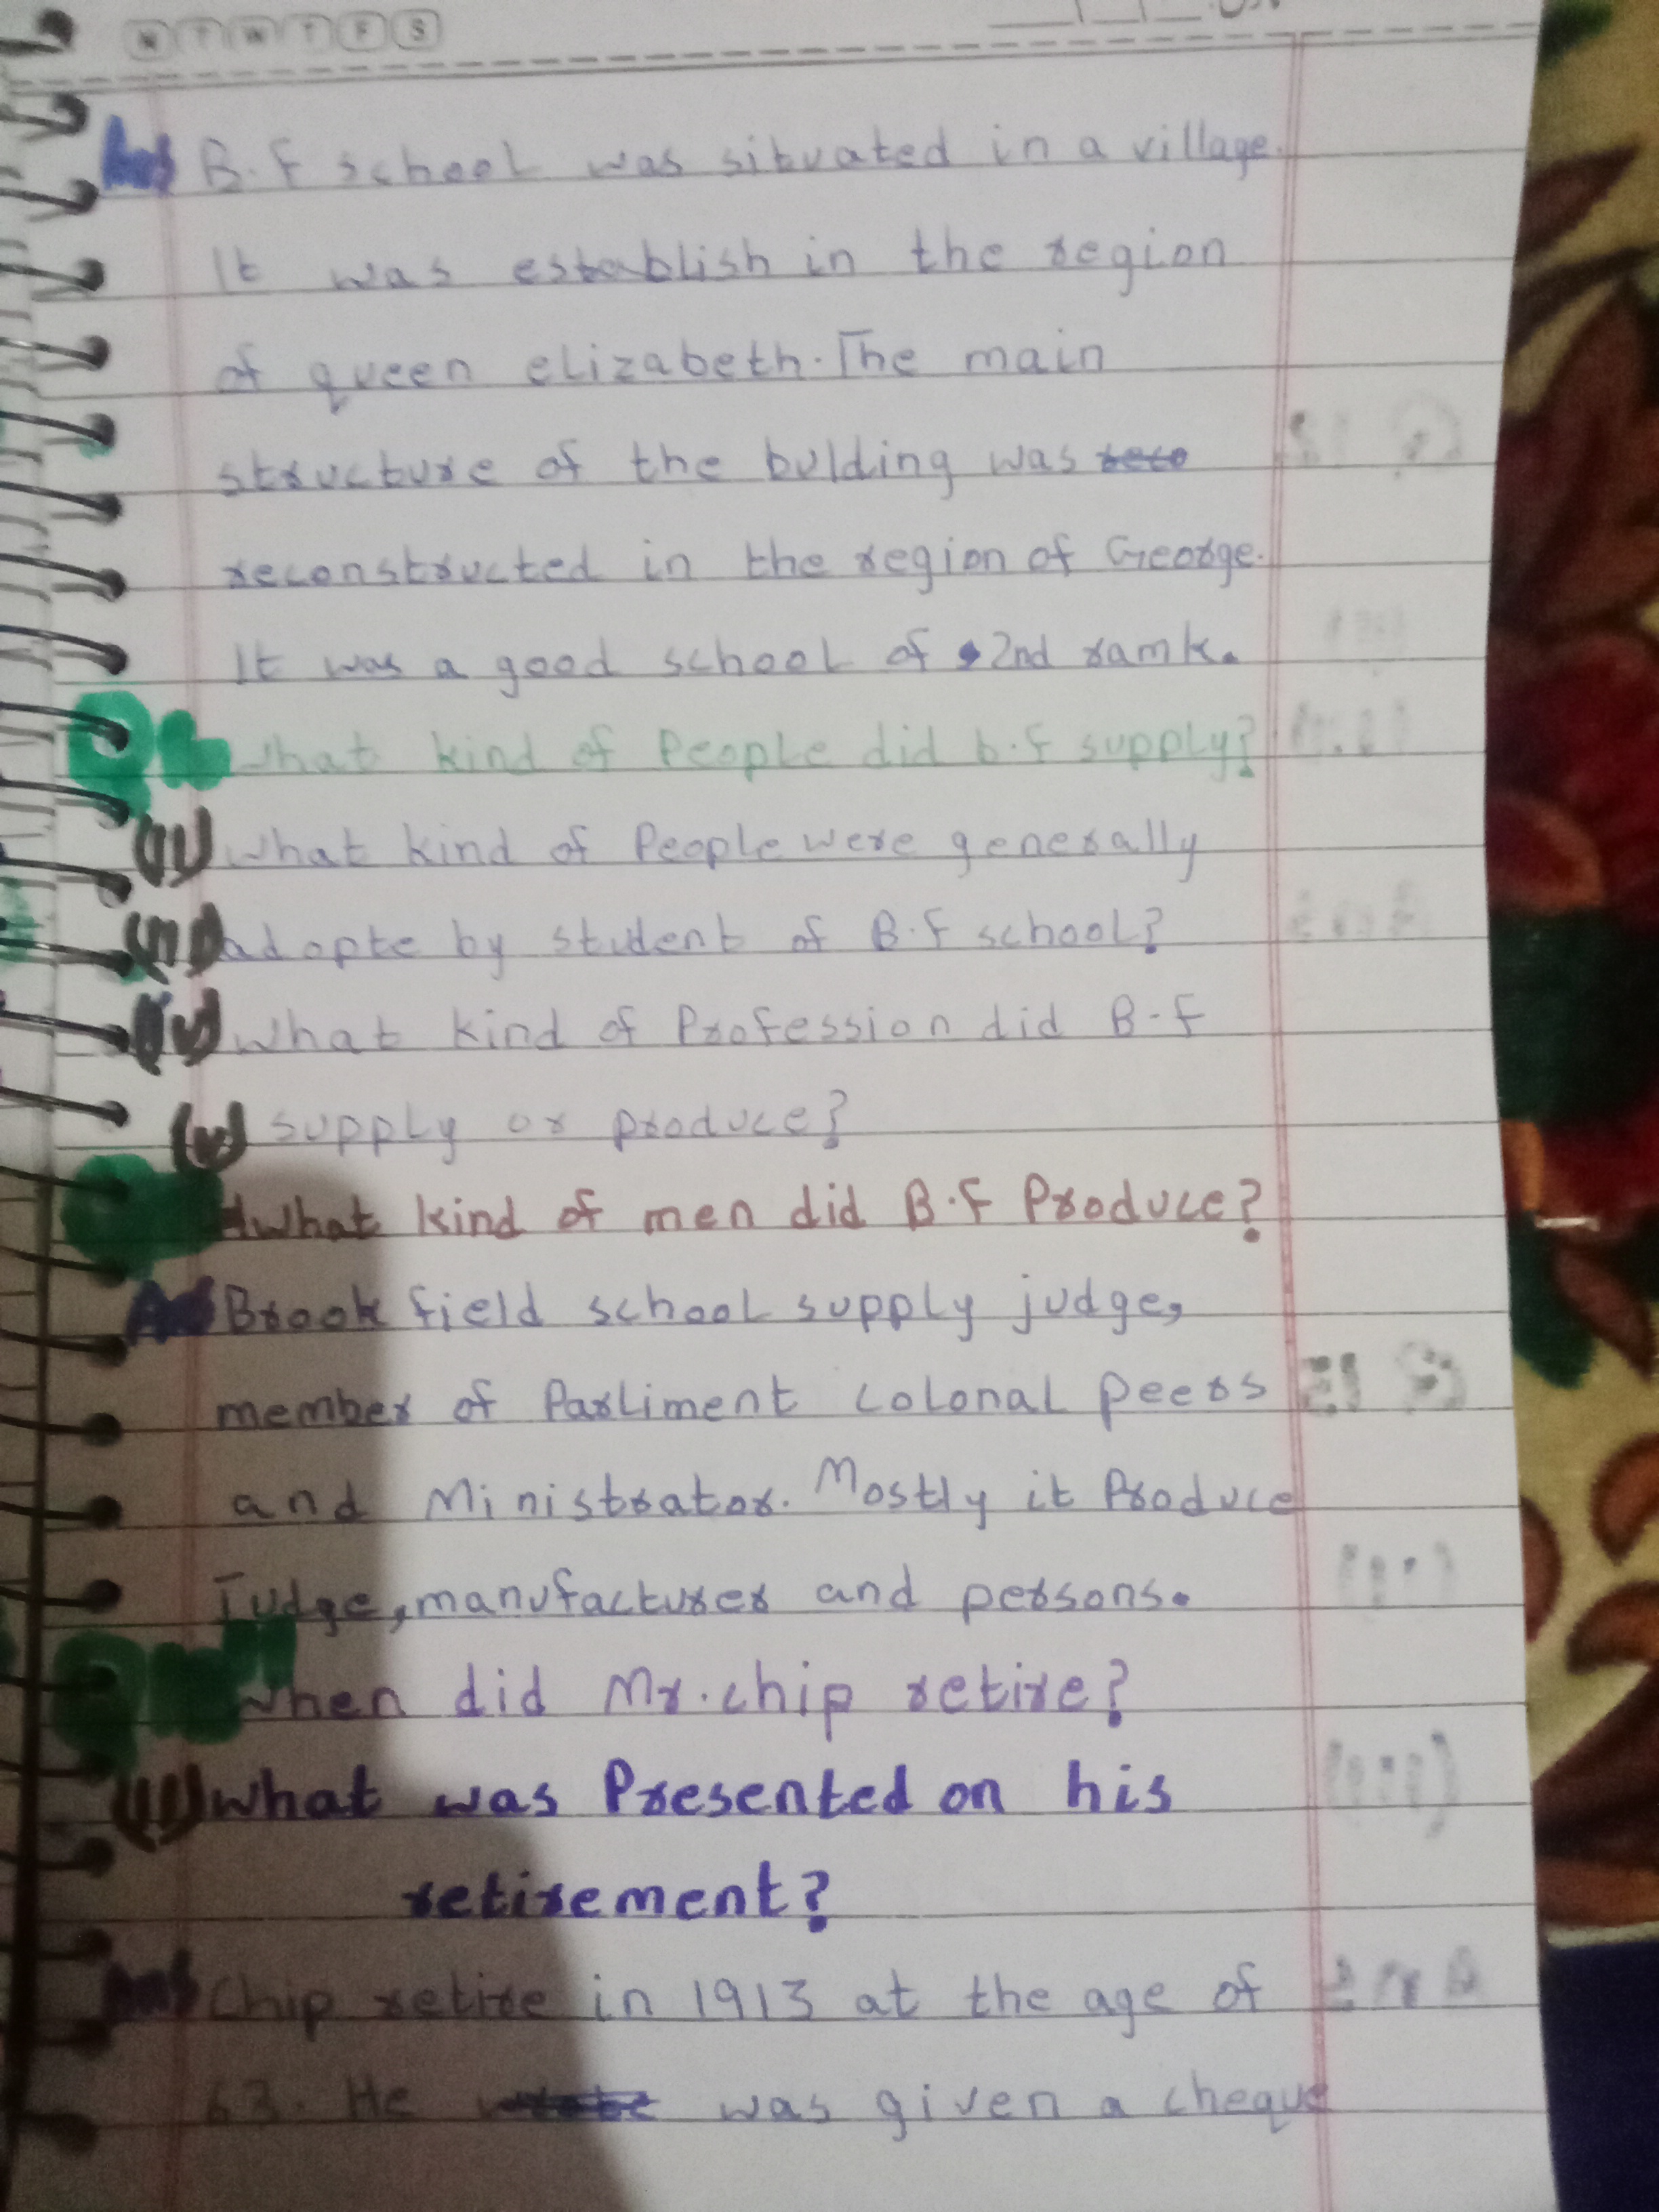 M T W T F S
Ans B.F school was situated in a village.
It was establish in the region
of queen elizabeth. The main
structure of the bulding was
reconstructed in the region of George.
It was a good school of 2nd ramk.
What kind of People did b.f supply?
(II) What kind of People were generally
(III) adopte by student of B.F school?
(iv) what kind of Profession did B.F
(v) supply or produce?
What kind of men did B.F Produce?
Ans Brook field school supply judge,
member of Parliment colonal peers
and Ministrator. Mostly it Produce
Judge, manufacturer and persons.
When did Mr. chip retire?
(II) What was Presented on his
retirement?
Ans Chip retire in 1913 at the age of
63. He was given a cheque